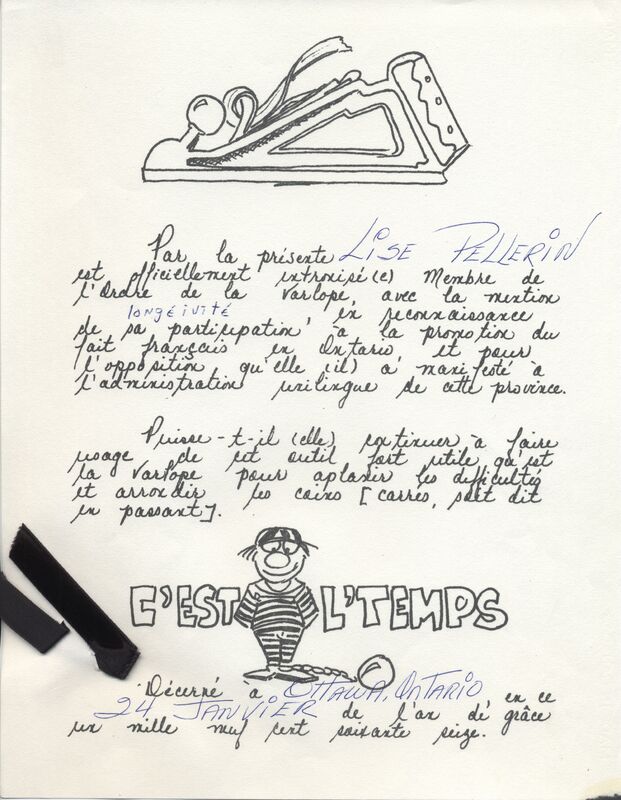 Par la présente LISE PELLERIN
est officiellement intronisé(e) Membre de
l'Ordre de la Varlope, avec la mention
longévité en reconnaissance
de sa participation à la promotion du
fait français en Ontario et pour
l'opposition qu'elle (il) a manifesté à
l'administration unilingue de cette province.
Puisse-t-il (elle) continuer à faire
usage de cet outil fort utile qu'est
la Varlope pour aplanir les difficultés
et arrondir les coins [carrés, soit dit
en passant].
C'EST L'TEMPS
Décerné à OTTAWA, ONTARIO en ce
24 JANVIER de l'an de grâce
un mille neuf cent soixante seize.